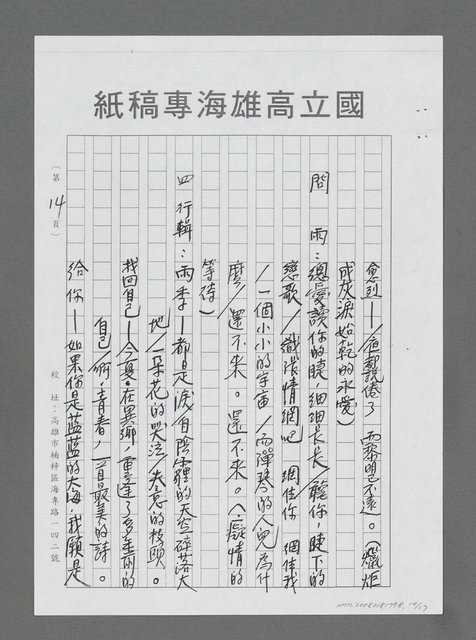 國立高雄海專稿紙
愈烈—夜都說倦了 黎明不遠。(蠟炬
成灰淚始乾的永愛)
問 雨:總愛讀你的睫,細細長長/聽你,睫下的
戀歌/織張情網吧 網住你 網住我
/一個小小的宇宙/而彈琴的人兒為什
麼/還不來。還不來。(癡情的
等待)
四行輯:雨季—都是淚/自陰霾的天空碎落大
地/一朵花的哭泣/失意的枝頭。
找回自己—今夏,在異鄉,重逢了多年前的
自己/啊,青春,一首最美的詩。
給你—如果你是藍藍的大海,我願是
(第14頁)
校址:高雄市楠梓區海專路一四二號
14/17